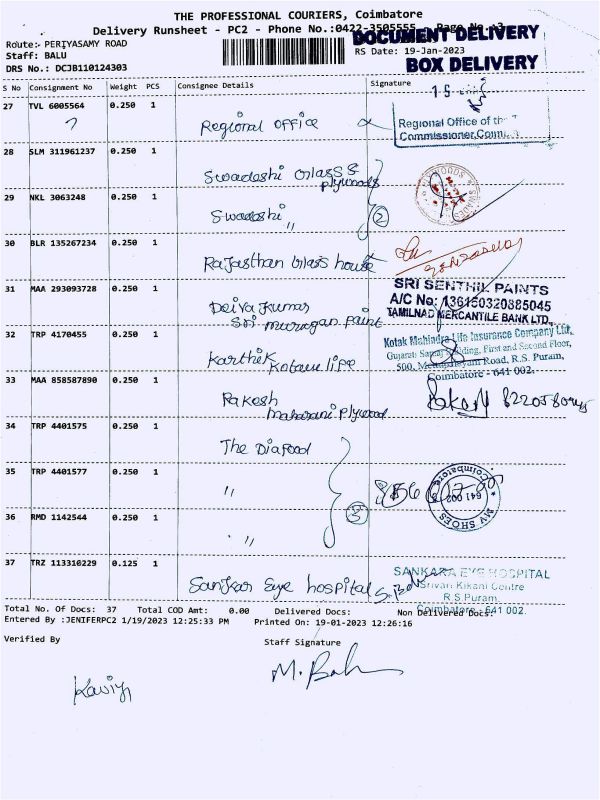 THE PROFESSIONAL COURIERS, Coimbatore
Delivery Runsheet - PC2 - Phone No.:0422-3505555 Page No.:3
DOCUMENT DELIVERY
Route:- PERIYASAMY ROAD
RS Date: 19-Jan-2023
Staff: BALU
BOX DELIVERY
DRS No.: DCJB110124303
S No Consignment No Weight PCS Consignee Details Signature
27 TVL 6005564 0.250 1 Regional Office
Regional Office of the
Commissioner,
28 SLM 311961237 0.250 1 Swadeshi Glass &
plywoods
29 NKL 3063248 0.250 1 Swadeshi "
2
30 BLR 135267234 0.250 1 Rajasthan Glass house
31 MAA 293093728 0.250 1 Deiva Kumar
Sri murugan Paint
SRI SENTHIL PAINTS
A/C No: 136150320885045
TAMILNAD MERCANTILE BANK LTD.
32 TRP 4170455 0.250 1 Karthik
Kotak life
Kotak Mahindra Life Insurance Company Ltd.
Gujarati Samaj Building, First and Second Floor,
500, Mettupalayam Road, R.S. Puram,
Coimbatore - 641 002.
33 MAA 858587890 0.250 1 Rakesh
maharani plywood
34 TRP 4401575 0.250 1 The Diafood
35 TRP 4401577 0.250 1 "
MV SHOES
Coimbatore
641 002
36 RMD 1142544 0.250 1 "
3
37 TRZ 113310229 0.125 1 Sankar Eye hospital
SANKARA EYE HOSPITAL
Srivari Kikani Centre
R.S.Puram,
Coimbatore - 641 002.
Total No. Of Docs: 37 Total COD Amt: 0.00 Delivered Docs: Non Delivered Docs:
Entered By :JENIFERPC2 1/19/2023 12:25:33 PM Printed On: 19-01-2023 12:26:16
Verified By
Staff Signature
M. Balu
Kaviy